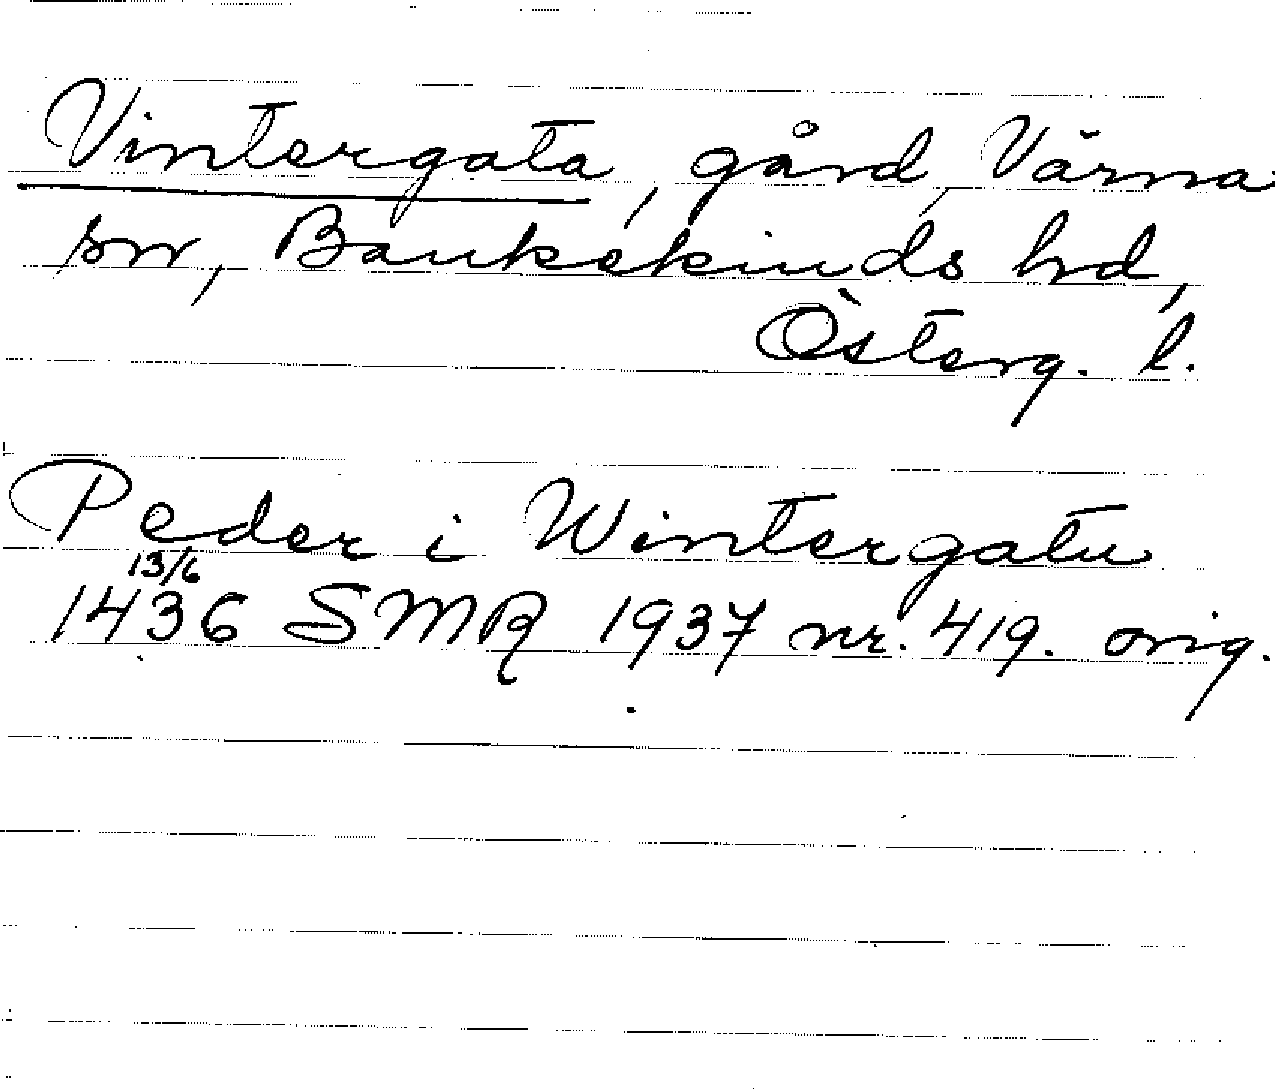 Vintergata, gård, Värna
sn, Bankekinds hd,
Österg. l.
Peder i Wintergatu
13/6
1436 SMR 1937 nr. 419. orig.